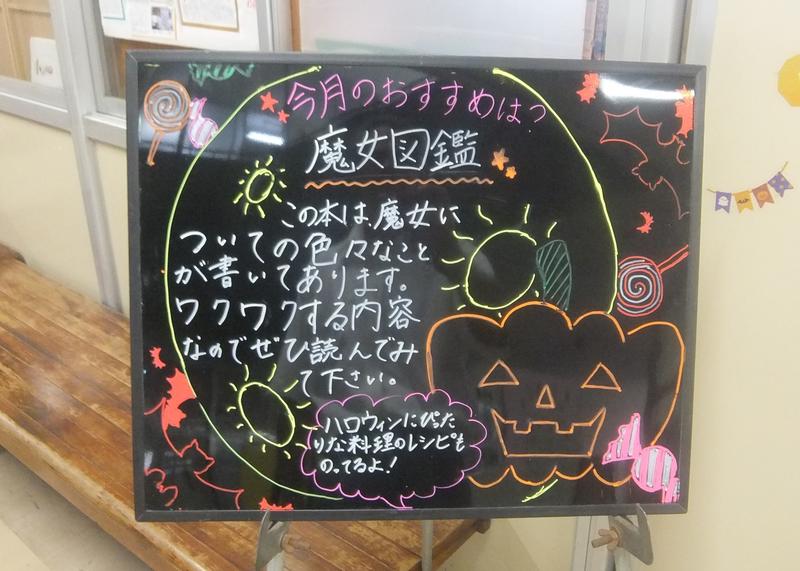 今月のおすすめは?
魔女図鑑
この本は、魔女に
ついての色々なこと
が書いてあります。
ワクワクする内容
なのでぜひ読んでみ
て下さい。
ハロウィンにぴった
りな料理のレシピも
のってるよ!